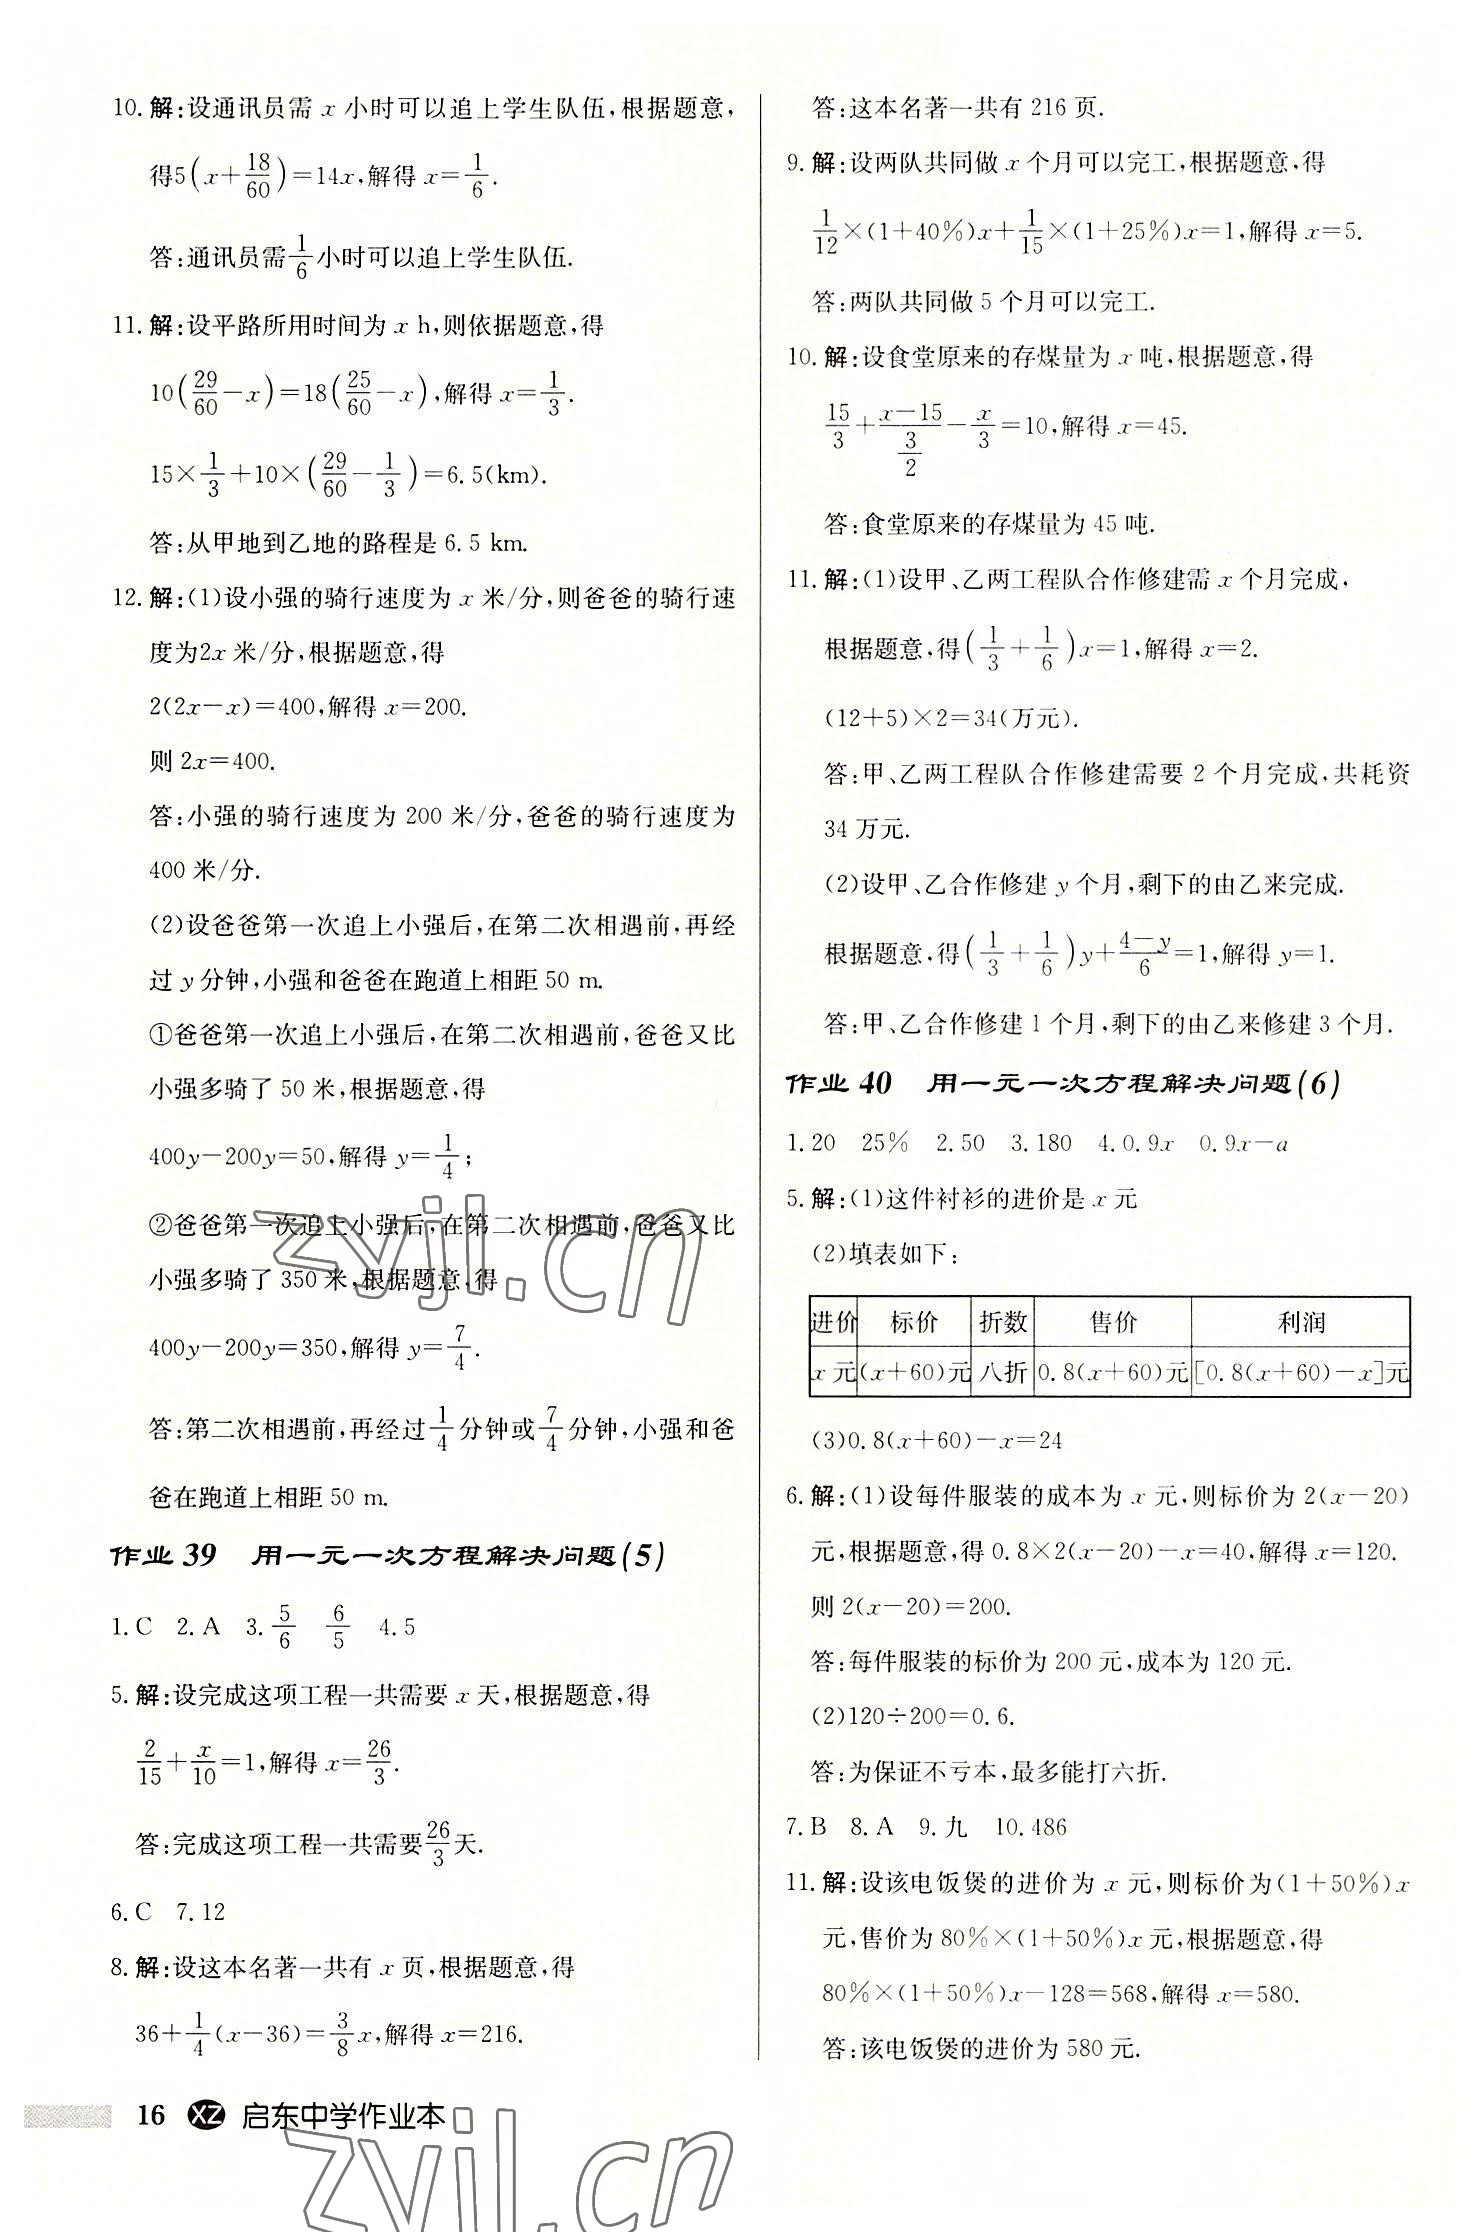 10. 解:设通讯员需 x 小时可以追上学生队伍,根据题意,
得5(x+18/60)=14x,解得 x=1/6.
答:通讯员需1/6小时可以追上学生队伍.
11. 解:设平路所用时间为 x h,则依据题意,得
10(29/60-x)=18(25/60-x),解得 x=1/3.
15×1/3+10×(29/60-1/3)=6.5(km).
答:从甲地到乙地的路程是 6.5 km.
12. 解:(1)设小强的骑行速度为 x 米/分,则爸爸的骑行速
度为2x 米/分,根据题意,得
2(2x-x)=400,解得 x=200.
则 2x=400.
答:小强的骑行速度为 200 米/分,爸爸的骑行速度为
400 米/分.
(2)设爸爸第一次追上小强后,在第二次相遇前,再经
过 y 分钟,小强和爸爸在跑道上相距 50 m.
①爸爸第一次追上小强后,在第二次相遇前,爸爸又比
小强多骑了 50 米,根据题意,得
400y-200y=50,解得 y=1/4;
②爸爸第一次追上小强后,在第二次相遇前,爸爸又比
小强多骑了 350 米,根据题意,得
400y-200y=350,解得 y=7/4.
答:第二次相遇前,再经过1/4分钟或7/4分钟,小强和爸
爸在跑道上相距 50 m.
作业 39 用一元一次方程解决问题(5)
1. C 2. A 3. 5/6 6/5 4. 5
5. 解:设完成这项工程一共需要 x 天,根据题意,得
2/15+x/10=1,解得 x=26/3.
答:完成这项工程一共需要26/3天.
6. C 7. 12
8. 解:设这本名著一共有 x 页,根据题意,得
36+1/4(x-36)=3/8x,解得 x=216.
答:这本名著一共有 216 页.
9. 解:设两队共同做 x 个月可以完工,根据题意,得
1/12×(1+40%)x+1/15×(1+25%)x=1,解得 x=5.
答:两队共同做 5 个月可以完工.
10. 解:设食堂原来的存煤量为 x 吨,根据题意,得
15/3+(x-15)/(3/2)-x/3=10,解得 x=45.
答:食堂原来的存煤量为 45 吨.
11. 解:(1)设甲、乙两工程队合作修建需 x 个月完成,
根据题意,得(1/3+1/6)x=1,解得 x=2.
(12+5)×2=34(万元).
答:甲、乙两工程队合作修建需要 2 个月完成,共耗资
34 万元.
(2)设甲、乙合作修建 y 个月,剩下的由乙来完成.
根据题意,得(1/3+1/6)y+(4-y)/6=1,解得 y=1.
答:甲、乙合作修建 1 个月,剩下的由乙来修建 3 个月.
作业 40 用一元一次方程解决问题(6)
1. 20 25% 2. 50 3. 180 4. 0.9x 0.9x-a
5. 解:(1)这件衬衫的进价是 x 元
(2)填表如下:
进价 标价 折数 售价 利润
x 元 (x+60)元 八折 0.8(x+60)元 [0.8(x+60)-x]元
(3)0.8(x+60)-x=24
6. 解:(1)设每件服装的成本为 x 元,则标价为 2(x-20)
元,根据题意,得 0.8×2(x-20)-x=40,解得 x=120.
则 2(x-20)=200.
答:每件服装的标价为 200 元,成本为 120 元.
(2)120÷200=0.6.
答:为保证不亏本,最多能打六折.
7. B 8. A 9. 九 10. 486
11. 解:设该电饭煲的进价为 x 元,则标价为(1+50%)x
元,售价为 80%×(1+50%)x 元,根据题意,得
80%×(1+50%)x-128=568,解得 x=580.
答:该电饭煲的进价为 580 元.
16 XZ 启东中学作业本
zyjl.cn
zyjl.cn